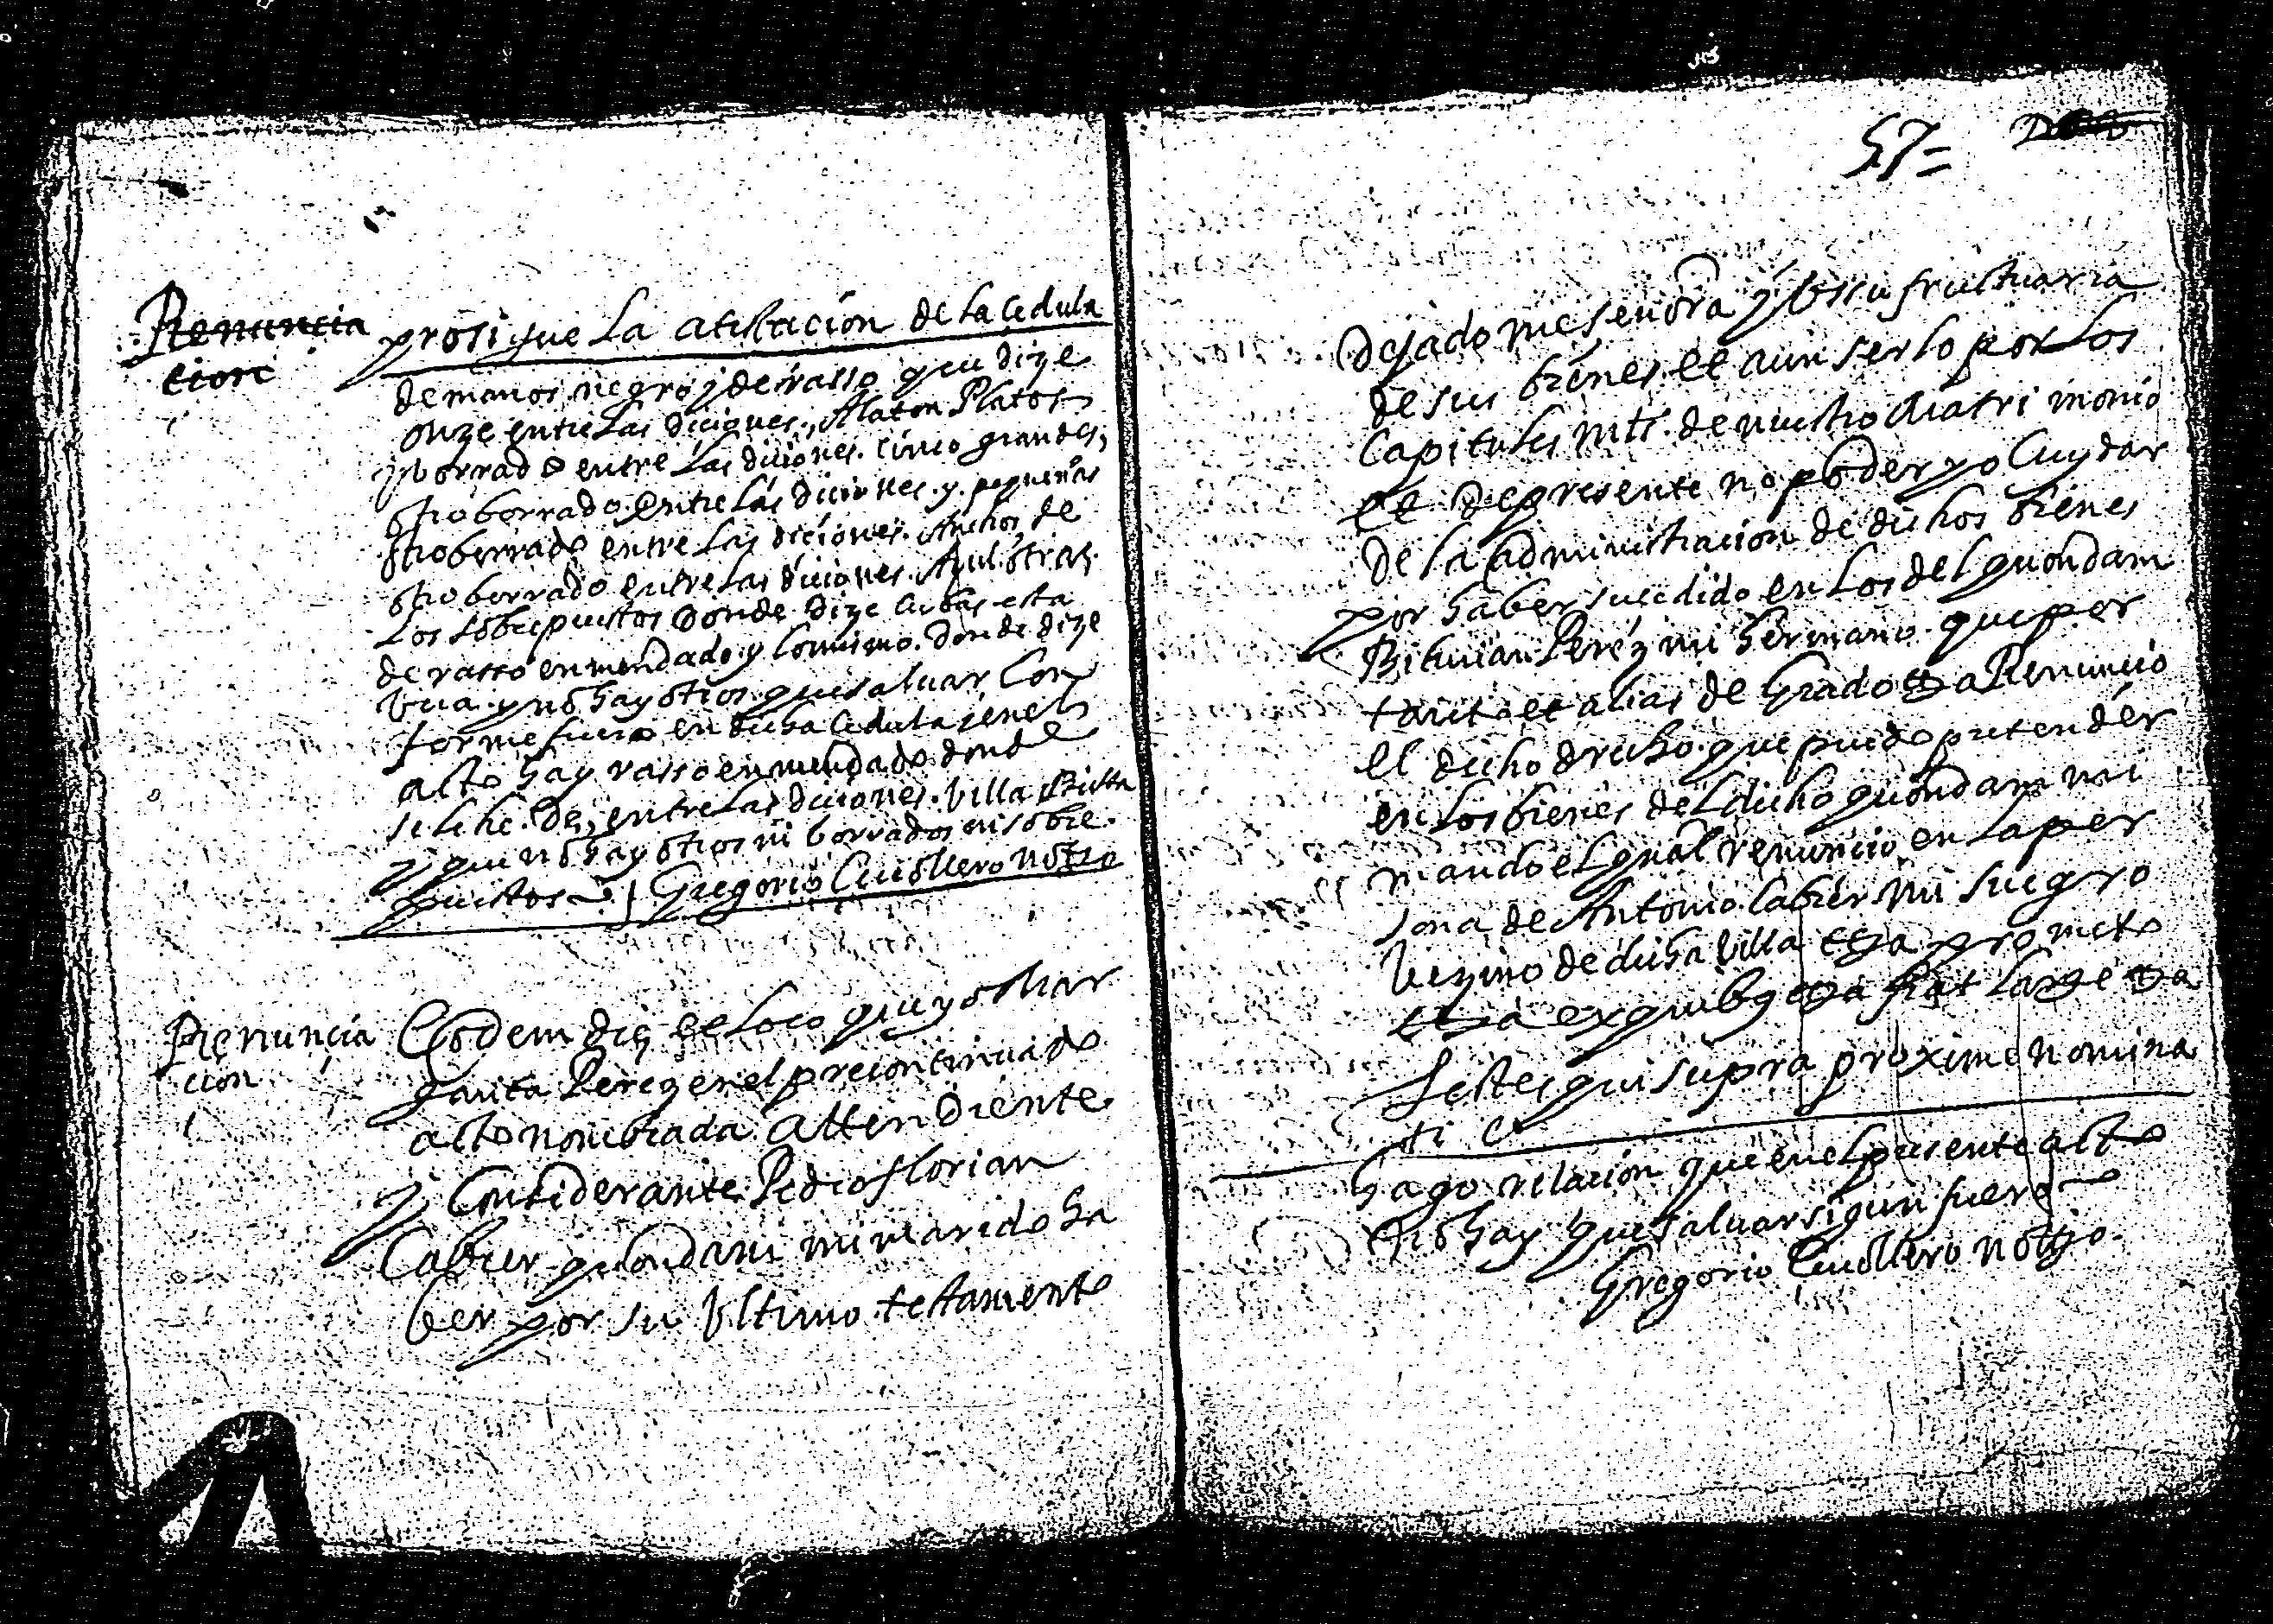 Renuncia
cion
prosigue la atestacion de la cedula
de manos negro, y de rasso que dize
onze entre las diciones. Alaton Platos
y borrado entre las diciones. cinco grandes,
otro borrado entre las diciones. y. pequeñas
otro borrado entre las diciones. Anchos de
otro borrado entre las diciones. Azul. otras.
Los sobrepuestos donde dize cubas esta
de rasso enmendado y lo mismo. donde dize
y no hay otros que salvar Con
forme fuero en dicha cedula, y en el
acto hay rasso enmendado donde
se lehe. De, entre las diciones. Villa
y que no hay otros ni borrados ni sobre
puestos Gregorio notro
Renuncia
cion
Eodem die et loco que yo Mar
garita Perez en el precontinuado
acto nombrada Attendiente
y Considerante Pedro Florian
Cabier quondam mi marido ha
ber por su Ultimo testamento
57=
Dejadome señora y Ussufructuaria
de sus bienes et aun serlo por los
Capitulos mtr. de nuestro Matrimonio
et de presente no poder yo Cuydar
De la administracion de dichos bienes
por haber sucedido en los del quondam
Perez mi hermano. que por
tanto et alias de Grado etza Renuncio
el dicho drecho. que puedo pretender
en los bienes del dicho quondam mi
marido el qual renuncio en la per
sona de Antonio Cabier mi suegro
Vezino de dicha Villa etza prometo
etza ex quibus etza fiat large etza
Testes qui supra proxime nomina
ti
Hago relacion que en el presente acto
no hay que salvar sigun fuero
Gregorio notro